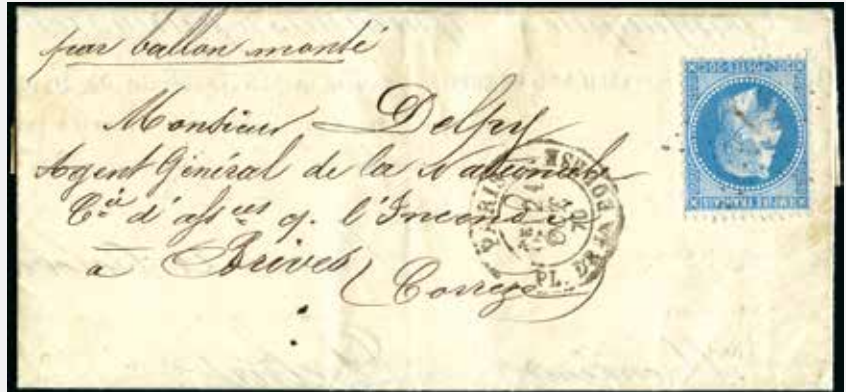 par ballon monté
Monsieur Delpy
Agent Général de la Nationale
Cie d'assces c. l'Incendie
à Brives (Corrèze)
PARIS
PL. DE LA BOURSE
OCT.
70
EMPIRE FRANÇAIS